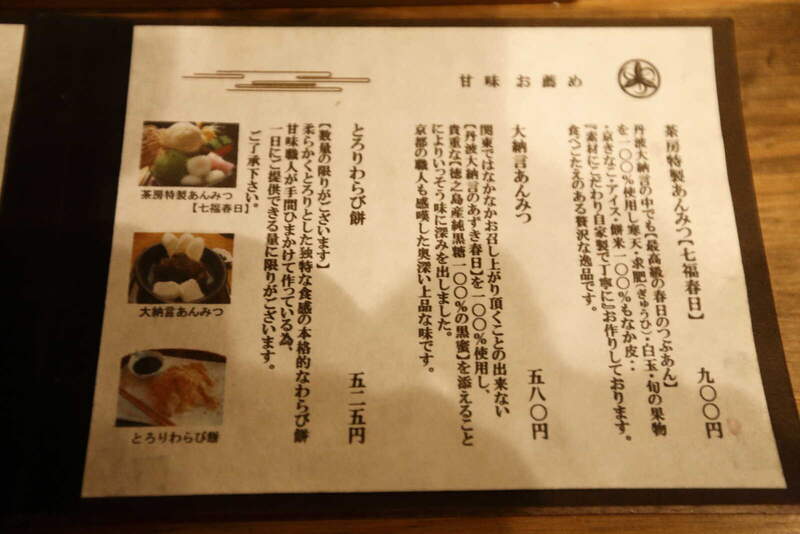 甘味お薦め
茶房特製あんみつ【七福春日】
九〇〇円
丹波大納言の中でも【最高級の春日のつぶあん】
を一〇〇%使用し寒天・求肥(ぎゅうひ)・白玉・旬の果物
・京きなこ・アイス・餅米一〇〇%もなか皮・・
『素材にこだわり自家製で丁寧に』お作りしております。
食べごたえのある贅沢な逸品です。
大納言あんみつ
五八〇円
関東ではなかなかお召し上がり頂くことの出来ない
【丹波大納言のあずき春日】を一〇〇%使用し、
貴重な【徳之島産純黒糖一〇〇%の黒蜜】を添えること
によりいっそう味に深みを出しました。
京都の職人も感嘆した奥深い上品な味です。
とろりわらび餅
五二五円
【数量の限りがございます】
柔らかくとろりとした独特な食感の本格的なわらび餅
甘味職人が手間ひまかけて作っている為、
一日にご提供できる量に限りがございます。
ご了承下さい。
茶房特製あんみつ
【七福春日】
大納言あんみつ
とろりわらび餅